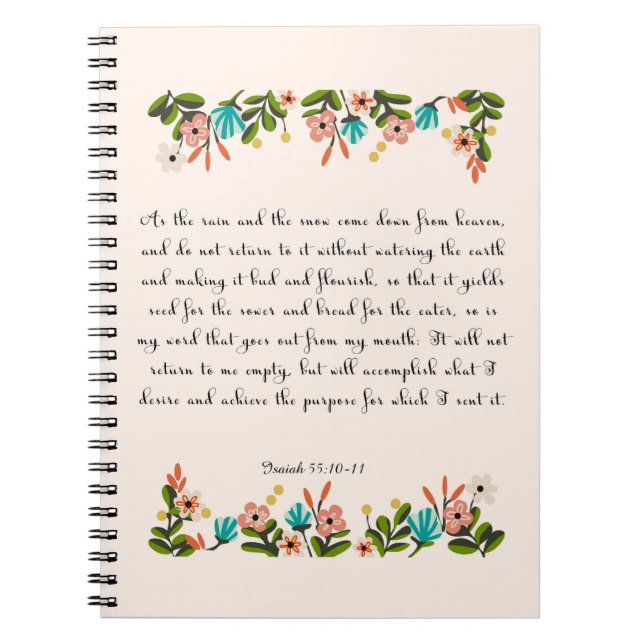 As the rain and the snow come down from heaven,
and do not return to it without watering the earth
and making it bud and flourish, so that it yields
seed for the sower and bread for the eater, so is
my word that goes out from my mouth: It will not
return to me empty, but will accomplish what I
desire and achieve the purpose for which I sent it.
Isaiah 55:10-11